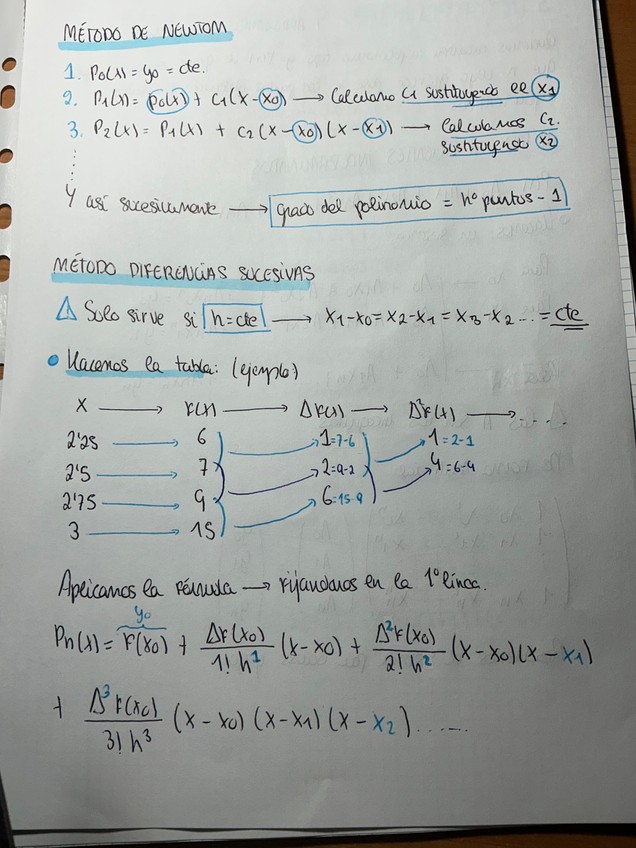 MÉTODO DE NEWTOM
1. P₀(x) = y₀ = cte.
2. P₁(x) = P₀(x) + C₁(x-x₀) → Calculamo C₁ sustituyendo el x₁
3. P₂(x) = P₁(x) + C₂(x-x₀)(x-x₁) → Calculamos C₂.
sustituyendo x₂
Y así sucesivamente → grado del polinomio = nº puntos - 1
MÉTODO DIFERENCIAS SUCESIVAS
Solo sirve si h=cte → x₁-x₀=x₂-x₁=x₃-x₂ ... = cte
• Hacemos la tabla: (ejemplo)
x → F(x) → ΔF(x) → Δ²F(x) → ....
2'25 → 6 → 1=7-6 → 1=2-1
2'5 → 7 → 2=9-2 → 4=6-4
2'75 → 9 → 6=15-9
3 → 15
Aplicamos la fórmula → fijandonos en la 1º línea.
y₀
Pn(x) = F(x₀) + ΔF(x₀)/1! h¹ (x-x₀) + Δ²F(x₀)/2! h² (x-x₀)(x-x₁)
+ Δ³F(x₀)/3! h³ (x-x₀)(x-x₁)(x-x₂) ......